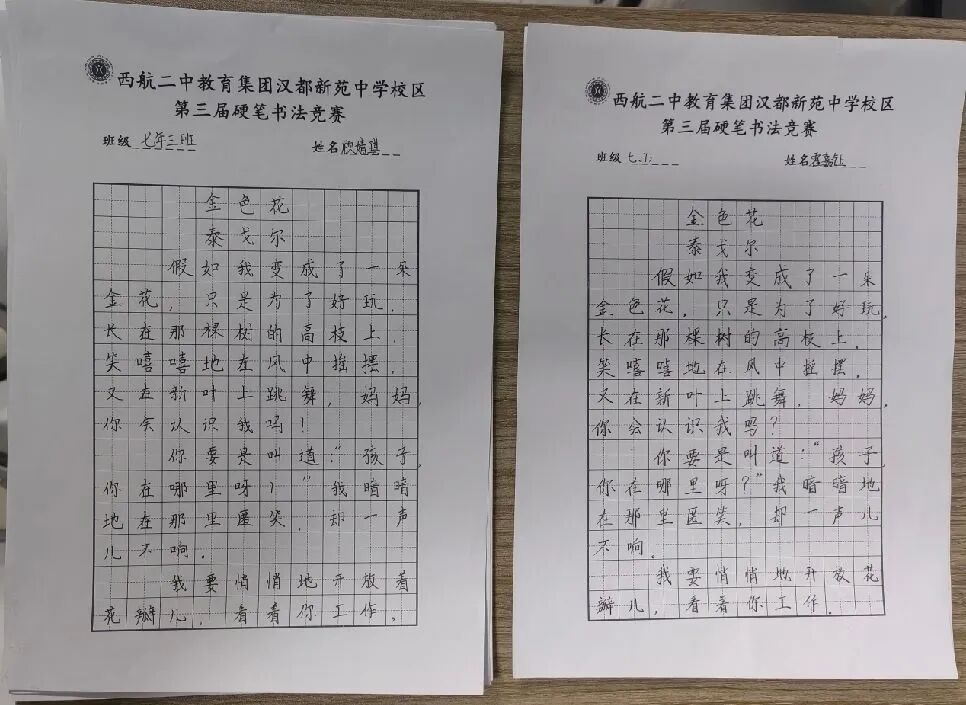 西航二中教育集团汉都新苑中学校区
第三届硬笔书法竞赛
班级 七年三班 姓名
金色花
泰戈尔
假如我变成了一朵
金花，只是为了好玩，
长在那棵树的高枝上，
笑嘻嘻地在风中摇摆，
又在新叶上跳舞，妈妈，
你会认识我吗！
你要是叫道：“孩子，
你在哪里呀？”我暗暗
地在那里匿笑，却一声
儿不响。
我要悄悄地开放着
花瓣儿，看着你工作。
西航二中教育集团汉都新苑中学校区
第三届硬笔书法竞赛
班级 七.1. 姓名
金色花
泰戈尔
假如我变成了一朵
金色花，只是为了好玩，
长在那棵树的高枝上，
笑嘻嘻地在风中摇摆，
又在新叶上跳舞，妈妈，
你会认识我吗？
你要是叫道：“孩子，
你在哪里呀？”我暗暗地
在那里匿笑，却一声儿
不响。
我要悄悄地开放花
瓣儿，看着你工作。